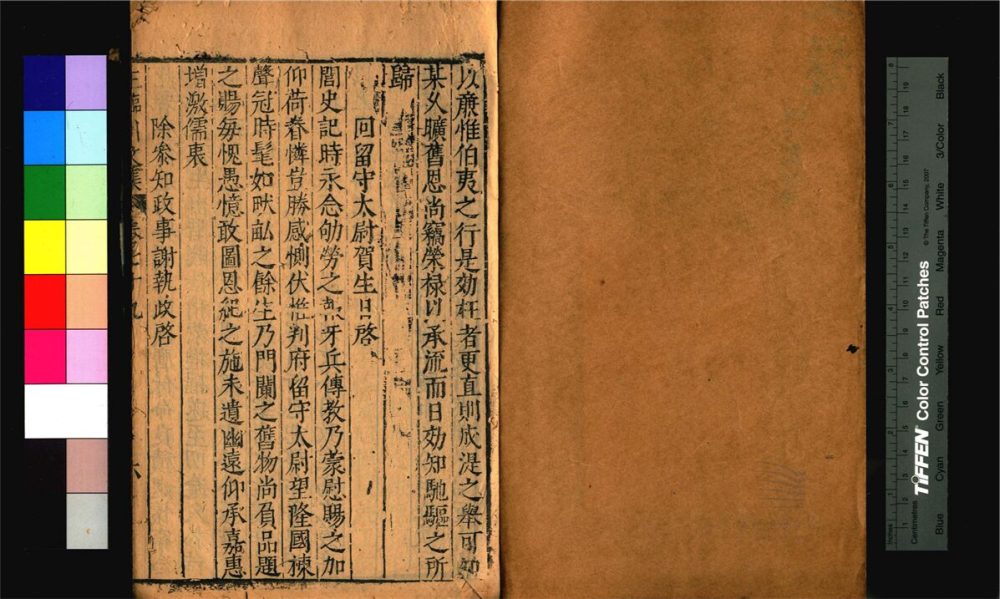 以廉惟伯夷之行是効枉者更直則成湜之舉可知
某久曠舊恩尚竊榮禄以承流而日効知馳驅之所
歸
回留守太尉賀生日啓
閭史記時永念劬勞之報牙兵傳教乃蒙慰賜之加
仰荷眷憐豈勝感惻伏惟判府留守太尉望隆國棟
聲冠時髦如畎畝之餘生乃門闌之舊物尚負品題
之賜每愧愚憶敢圖恩紀之施未遺幽遠仰承嘉惠
增激儒衷
除叅知政事謝執政啓
TIFFEN Color Control Patches
© The Tiffen Company, 2007
Blue Cyan Green Yellow Red Magenta White 3/Color Black
Inches
Centimetres